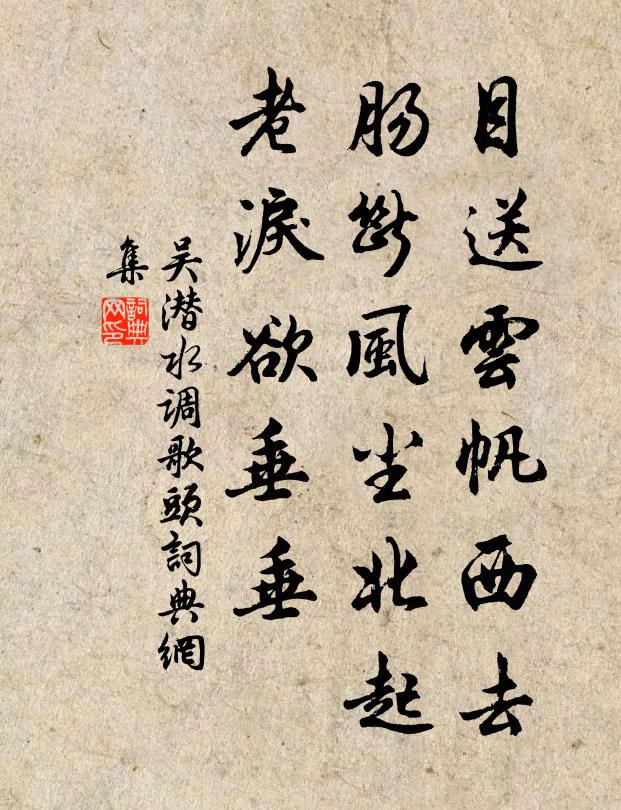 目送雲帆西去
腸斷風尘北起
老淚欲垂垂
吴潜水调歌頭詞典網
集
詞典
网